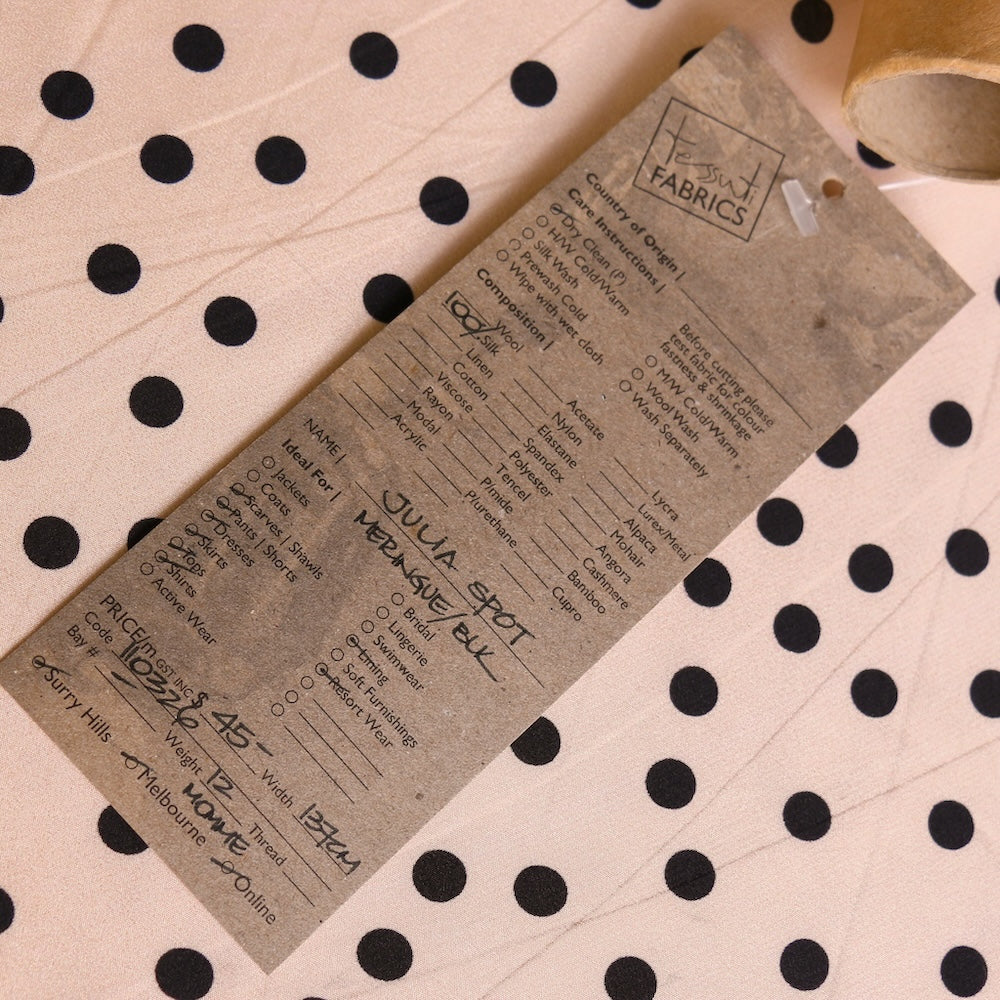 Tessuti
FABRICS
Country of Origin |
Care Instructions |
Dry Clean (P)
H/W Cold/Warm
Silk Wash
Prewash Cold
Wipe with wet cloth
Before cutting please
test fabric for colour
fastness & shrinkage
M/W Cold/Warm
Wool Wash
Wash Separately
Composition |
Wool
100% Silk
Linen
Cotton
Viscose
Rayon
Modal
Acrylic
Acetate
Nylon
Elastane
Spandex
Polyester
Tencel
P/mide
P/urethane
Lycra
Lurex/Metal
Alpaca
Mohair
Angora
Cashmere
Bamboo
Cupro
NAME | JULIA SPOT
MERINGUE/BLK
Ideal For |
Jackets
Coats
Scarves | Shawls
Pants | Shorts
Dresses
Skirts
Tops
Shirts
Active Wear
Bridal
Lingerie
Swimwear
Lining
Soft Furnishings
Resort Wear
PRICE/m GST INC. $ 45-
Code 1103326
Width 137CM
Bay #
Weight 12 MOMME
Thread
Surry Hills
Melbourne
Online